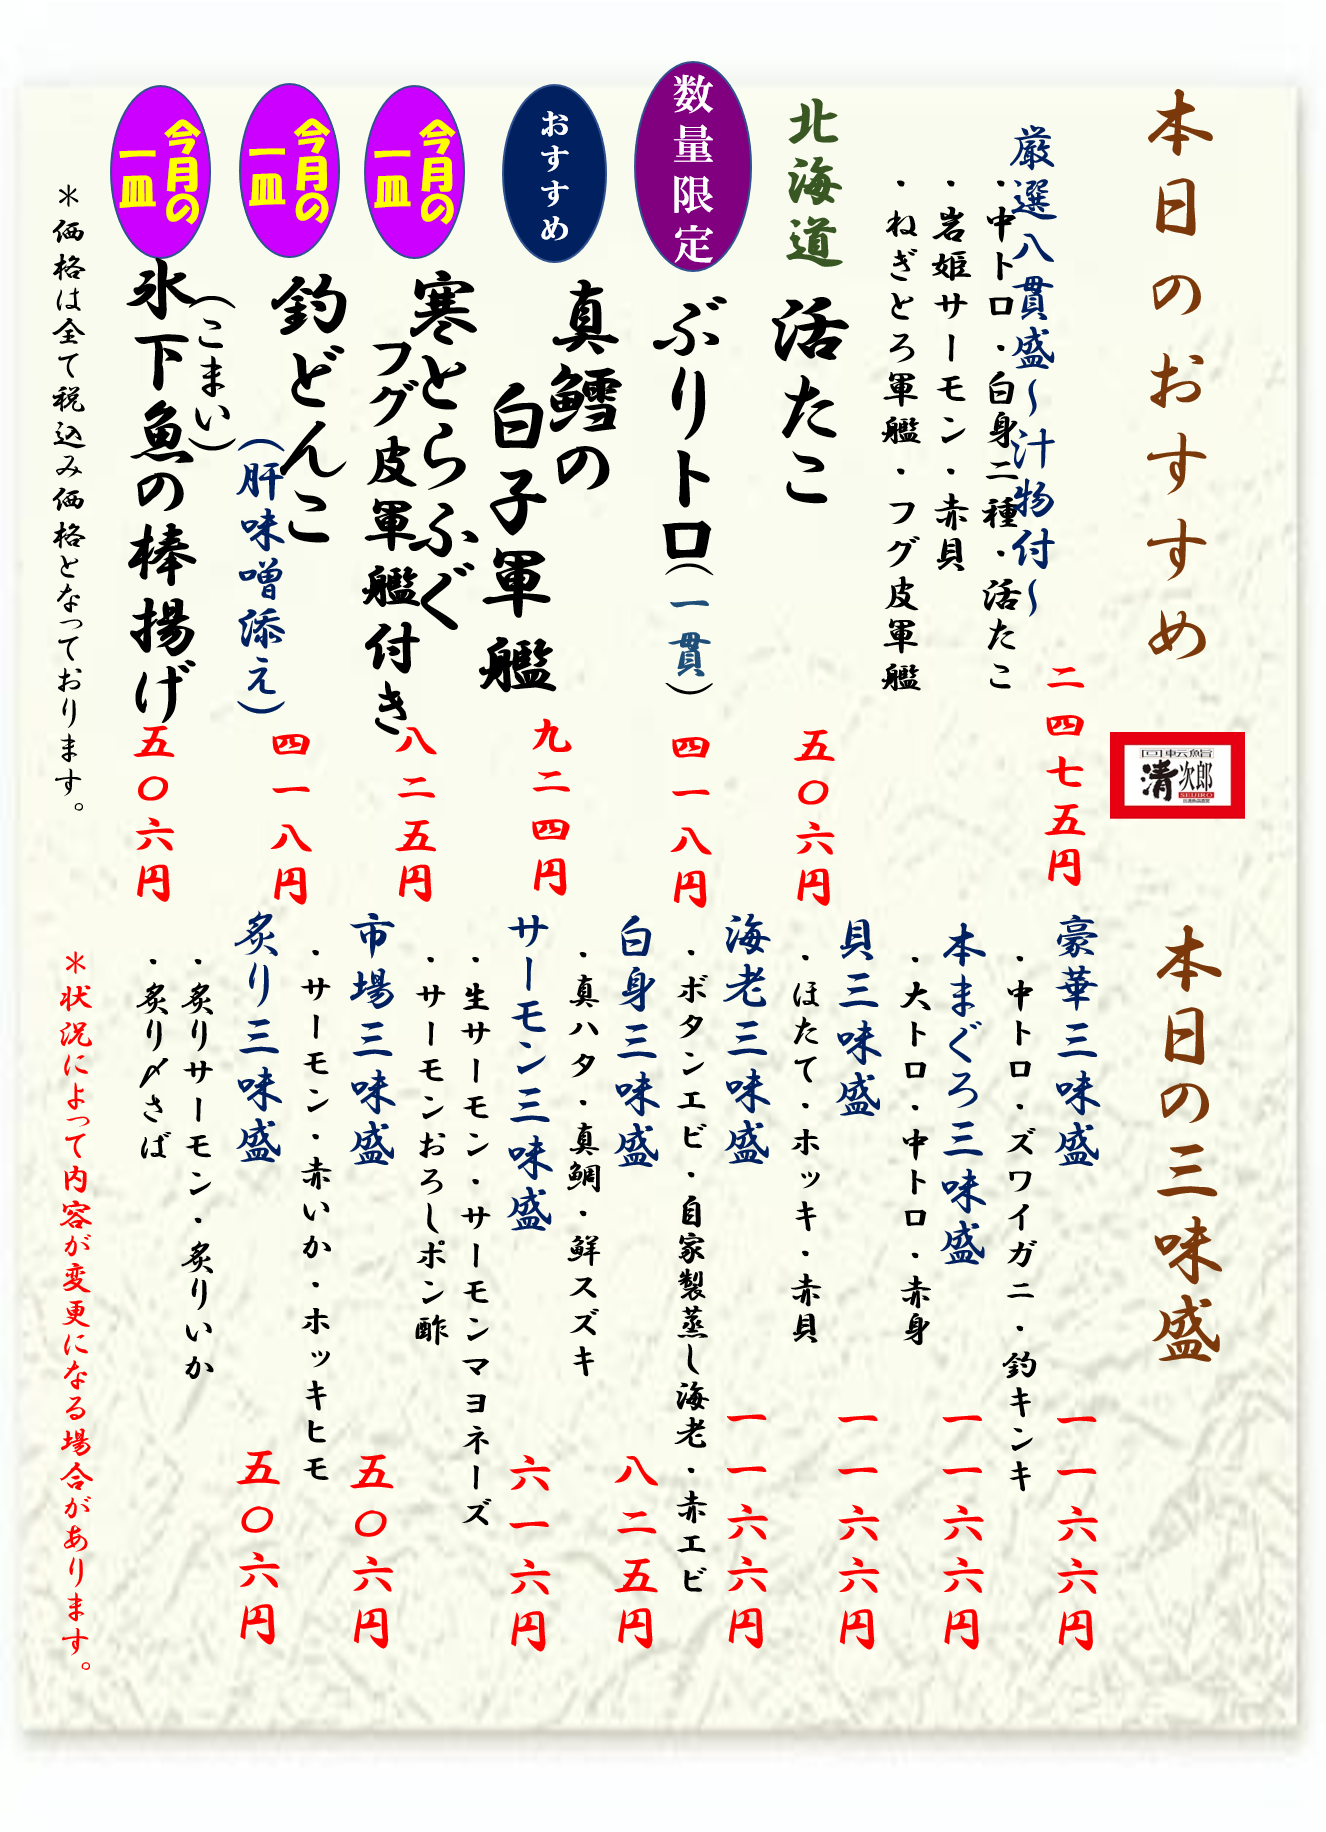 本日のおすすめ
厳選八貫盛～汁物付～
・中トロ・白身二種・活たこ
・岩姫サーモン・赤貝
・ねぎとろ軍艦・フグ皮軍艦
二四七五円
北海道
活たこ
五〇六円
数量限定
ぶりトロ(一貫)
四一八円
おすすめ
真鱈の
白子軍艦
九二四円
今月の
一皿
寒とらふぐ
フグ皮軍艦付き
八二五円
今月の
一皿
釣どんこ
(肝味噌添え)
四一八円
今月の
一皿
(こまい)
氷下魚の棒揚げ
五〇六円
＊価格は全て税込み価格となっております。
回転鮨
清次郎
SEIJIRO
本日の三味盛
豪華三味盛
・中トロ・ズワイガニ・釣キンキ
一一六六円
本まぐろ三味盛
・大トロ・中トロ・赤身
一一六六円
貝三味盛
・ほたて・ホッキ・赤貝
一一六六円
海老三味盛
・ボタンエビ・自家製蒸し海老・赤エビ
一一六六円
白身三味盛
・真ハタ・真鯛・鮮スズキ
八二五円
サーモン三味盛
・生サーモン・サーモンマヨネーズ
・サーモンおろしポン酢
六一六円
市場三味盛
・サーモン・赤いか・ホッキヒモ
五〇六円
炙り三味盛
・炙りサーモン・炙りいか
・炙り〆さば
五〇六円
＊状況によって内容が変更になる場合があります。